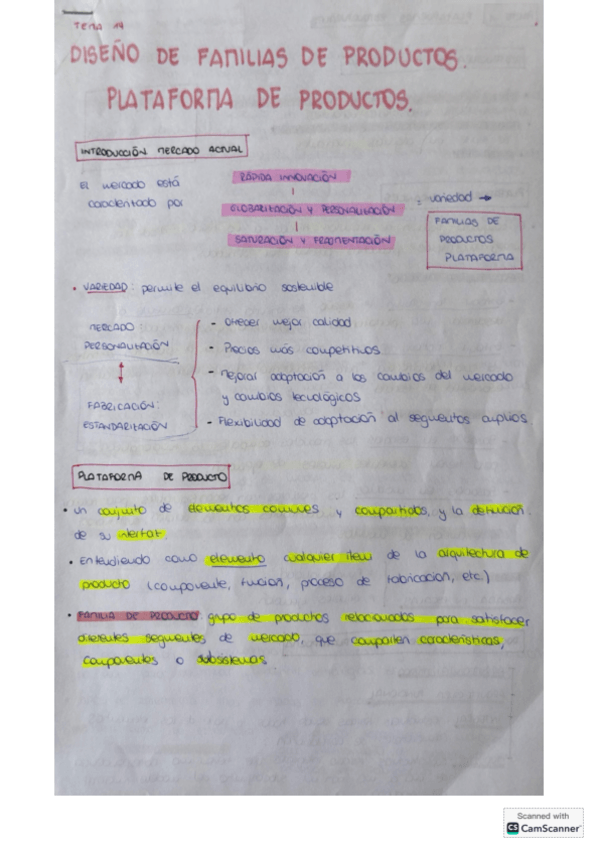 TEMA 14
DISEÑO DE FAMILIAS DE PRODUCTOS.
PLATAFORMA DE PRODUCTOS.
INTRODUCCIÓN MERCADO ACTUAL
El mercado está
caracterizado por
RÁPIDA INNOVACIÓN
GLOBALIZACIÓN Y PERSONALIZACIÓN
SATURACIÓN Y FRAGMENTACIÓN
: variedad →
FAMILIAS DE
PRODUCTOS
PLATAFORMA
• VARIEDAD: permite el equilibrio sostenible
MERCADO:
PERSONALIZACIÓN
↕
FABRICACIÓN:
ESTANDARIZACIÓN
- Ofrecer mejor calidad
- Precios más competitivos
- Mejorar adaptación a los cambios del mercado
y cambios tecnológicos
- Flexibilidad de adaptación al segmentos amplios
PLATAFORMA DE PRODUCTO
• un conjunto de elementos comunes y compartidos, y la definición
de su interfaz.
• Entendiendo como elemento cualquier ítem de la arquitectura de
producto (componente, función, proceso de fabricación, etc.)
• FAMILIA DE PRODUCTO: grupo de productos relacionados para satisfacer
diferentes segmentos de mercado, que comparten características,
componentes o subsistemas.
Scanned with
CS CamScanner